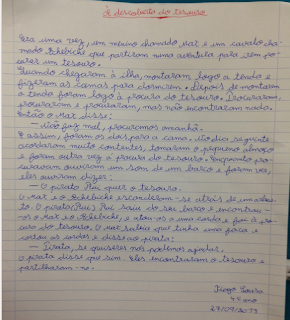 A descoberta do tesouro
Era uma vez, um menino chamado Mat e um cavalo cha-
mado que partiram numa aventura para
um tesouro.
Quando chegaram à ilha, montaram logo a tenda e
fizeram as camas para dormirem. Depois de montarem
a tenda foram logo à procura do tesouro. Procuraram,
procuraram e procuraram, mas não encontraram nada.
Então o Mat disse:
— Não faz mal, procuramos amanhã.
E assim, foram os dois para a cama. No dia seguinte
acordaram muito contentes, tomaram o pequeno almoço
e foram outra vez à procura do tesouro. Enquanto pro-
curavam ouviram um som de um barco e foram ver,
eles ouviram dizer:
— O pirata Rui quer o tesouro.
O Mat e o esconderam-se atrás de um
O pirata (Rui) Rui saiu do seu barco e encontrou-
os o Mat e o e atou-os a uma corda e foi à pro-
cura do tesouro. O Mat sabia que tinha uma faca e
cortou as cordas e disse ao pirata:
— Pirata, se quiseres nós podemos ajudar.
O pirata disse que sim. Eles encontraram o tesouro e
partilharam-no.
4º ano